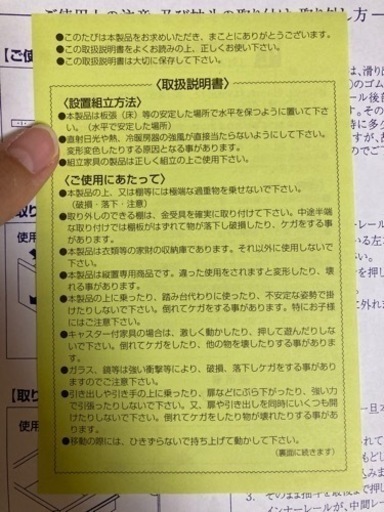 ●このたびは本製品をお求めいただき、まことにありがとうございます。
●この取扱説明書をよくお読みの上、正しくお使い下さい。
●この取扱説明書は大切に保存して下さい。
〈取扱説明書〉
〈設置組立方法〉
●本製品は板張（床）等の安定した場所で水平を保つように置いて下さい。（水平で安定した場所）
●直射日光や熱、冷暖房器の強風が直接当たらないようにして下さい。
変形変色したりする原因となる事があります。
●組立家具の製品は正しく組立の上ご使用下さい。
〈ご使用にあたって〉
●本製品の上、又は棚等には極端な過重物を乗せないで下さい。
（破損・落下・注意）
●取り外しのできる棚は、金受具を確実に取り付けて下さい。中途半端
な取り付けでは棚板がはずれて物が落下し破損したり、ケガをする事
があります。
●本製品は衣類等の家財の収納庫であります。それ以外に使用しない
で下さい。
●本製品は縦置専用商品です。違った使用をされますと変形したり、壊
れる事があります。
●本製品の上に乗ったり、踏み台代わりに使ったり、不安定な姿勢で掛
けたりしないで下さい。倒れてケガをする事があります。特にお子様
にはご注意下さい。
●キャスター付家具の場合は、激しく動かしたり、押して遊んだりしな
いで下さい。倒れてケガをしたり、他の物を壊したりする事があります。
●ガラス、鏡等は強い衝撃等により、破損、落下しケガをする事があり
ますのでご注意下さい。
●引き出しや引き手の上に乗ったり、扉などにぶら下がったり、強い力
で引張ったりしないで下さい。又、扉や引き出しを同時にいくつも開
けたりしないで下さい。倒れてケガをしたり物が壊れたりする事があり
ます。
●移動の際には、ひきずらないで持ち上げて動かして下さい。
（裏面に続きます）